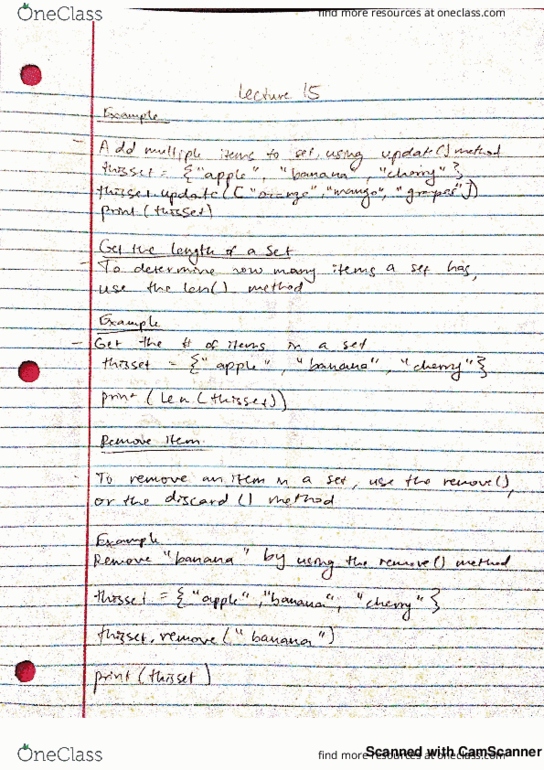 OneClass
find more resources at oneclass.com
Lecture 15
Example
- Add multiple items to set, using update() method
thisset = {"apple", "banana", "cherry"}
thisset.update(["orange","mango","grapes"])
print(thisset)
Get the Length of a Set
- To determine how many items a set has,
use the len() method
Example
- Get the # of items in a set
thisset = {"apple", "banana", "cherry"}
print(len(thisset))
Remove Item
- To remove an item in a set, use the remove(),
or the discard() method
Example
Remove "banana" by using the remove() method
thisset = {"apple","banana", "cherry"}
thisset.remove("banana")
print(thisset)
OneClass
find more resources at oneclass.com
Scanned with CamScanner